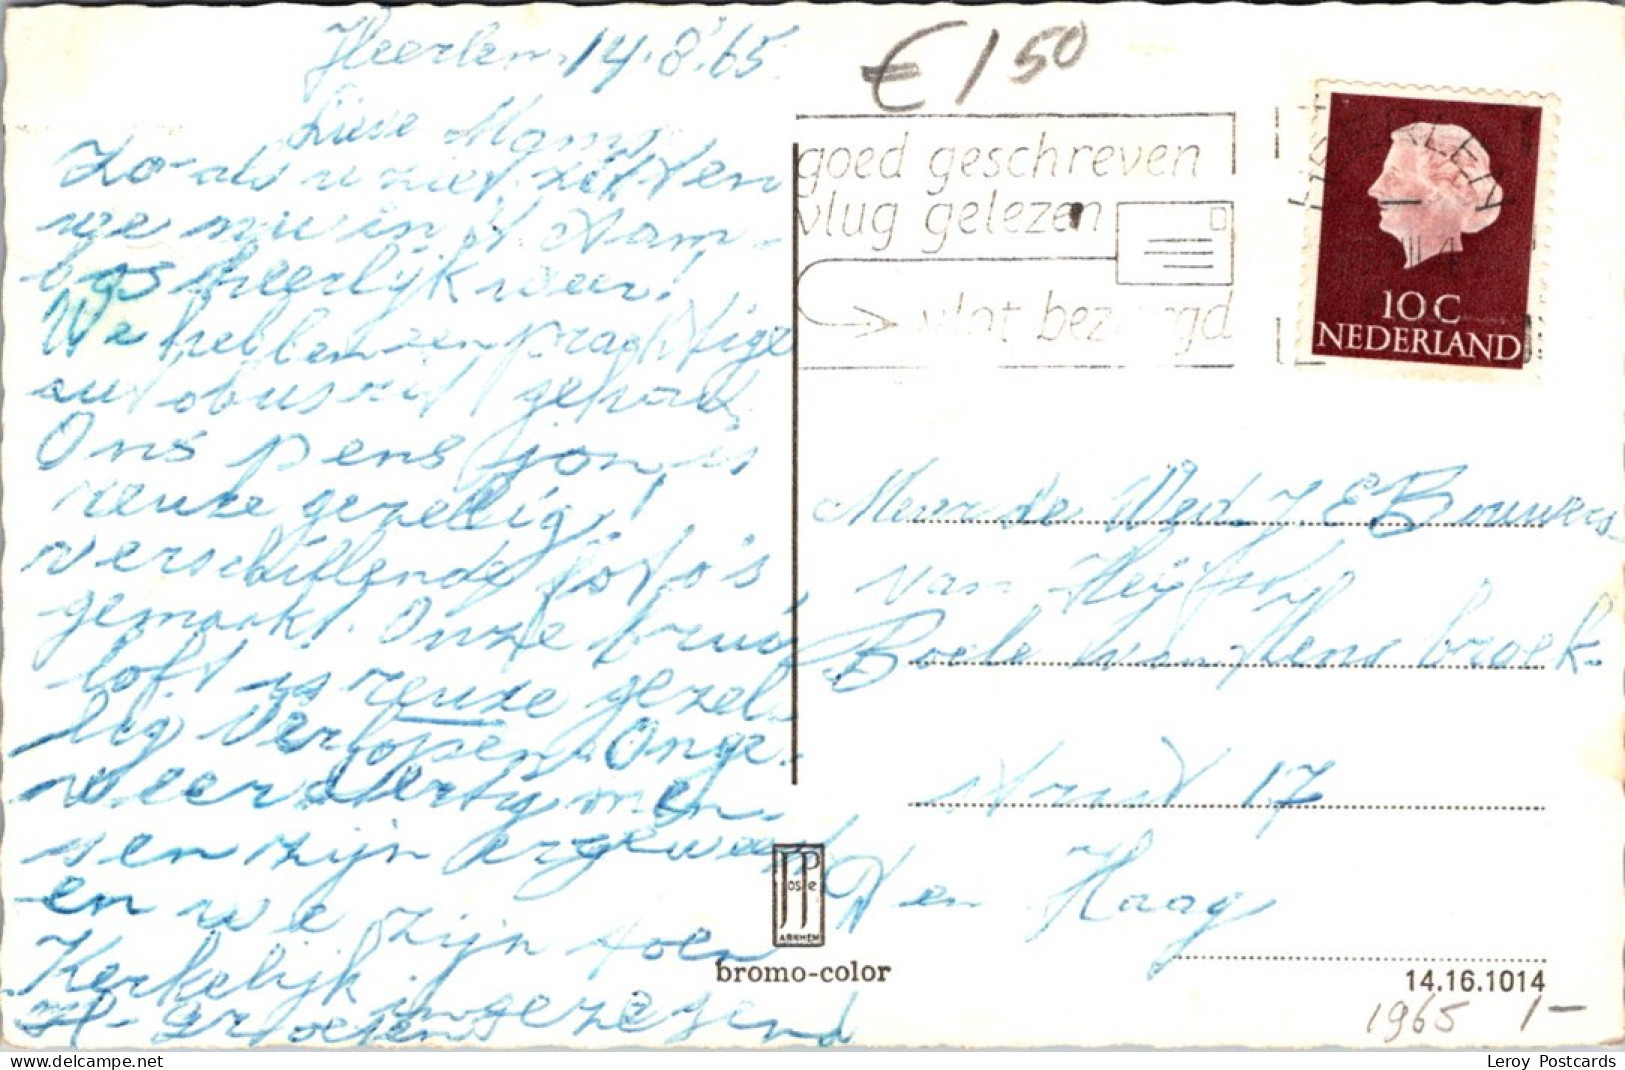 Heerlen, 14.8.'65
Lieve Mams
Zo-als u ziet zitten
we nu in 't Aam-
bos heerlijk weer!
We hebben een prachtige
autobusrit gehad
Ons pensjon is
reuze gezellig!
verschillende foto's,
gemaakt. Onze brui
loft is reuze gezel
lig verlopen Onge
veer dertig men-
sen zijn er geweest
en we zijn toen
Kerkelijk ingezegend
H- Groeten
€ 1 50
goed geschreven
vlug gelezen
vlot bezorgd
HEERLEN
10 C
NEDERLAND
Mevr de Wed J E Bouwers
van Heijst
Boele van Hens broek-
straat 17
Den Haag
JosPe
ARNHEM
bromo-color
14.16.1014
1965 1-
Leroy Postcards